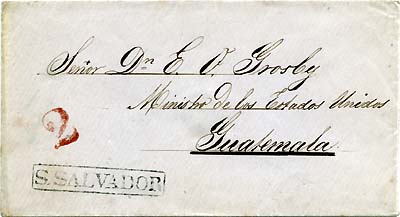 Señor Dn E. O. Grosby
Ministro de los Estados Unidos
Guatemala
2
S. SALVADOR